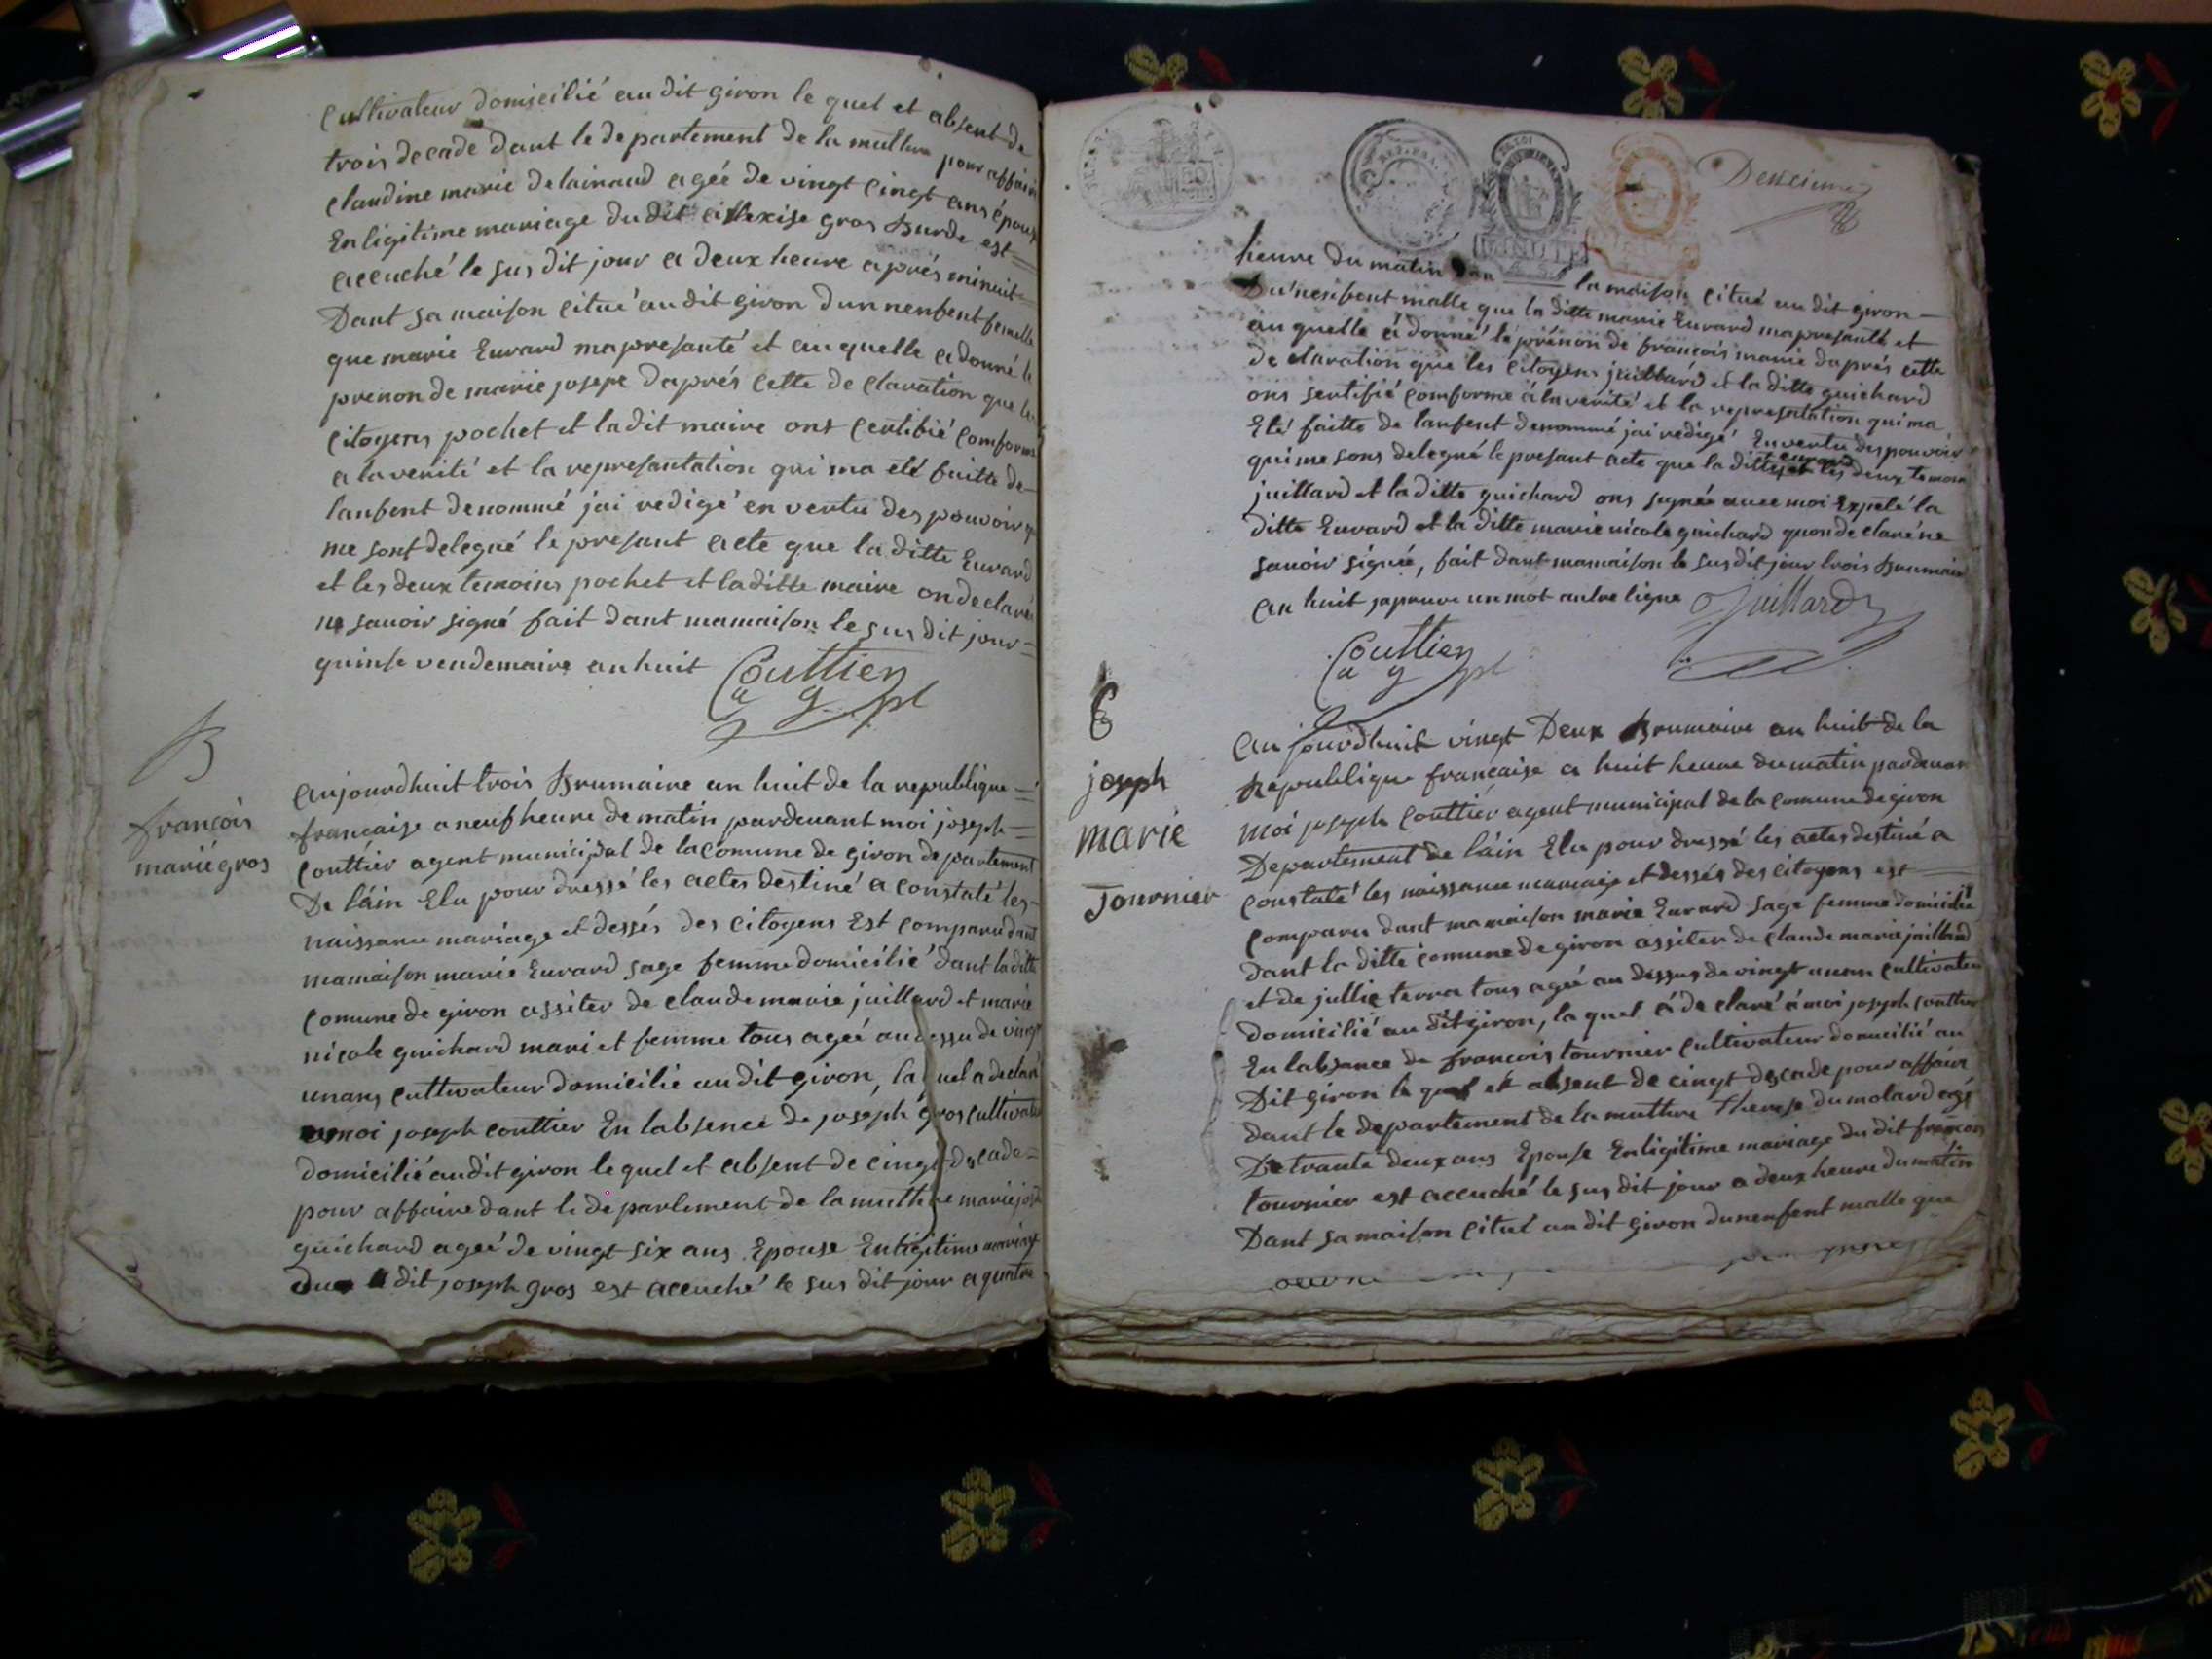 Cultivateur domicilié audit giron le quel et absent de
trois decade dant le departement de la mutture pour affaire
claudine marie delainaud agée de vingt cinqt ans épouse
En ligitime mariage du dit alexise gros Burde est
accuché le sus dit jour a deux heure aprés minuit
Dant sa maison citué au dit giron dun nenfent femelle
que marie Euvard ma presanté et au quelle a donné le
prenon de marie josepe daprés cette declaration que les
citoyens pochet et la dit maire ont certifié comforme
a la verité et la represantation qui ma eté faitte de
lanfent denommé jai redigé en vertu des pouvoir qui
me sont delegué le presant acte que la ditte Euvard
et les deux temoins pochet et la ditte maire on declaré
ne savoir signé fait dant mamaison le sus dit jour
quinse vendemaire an huit Couttier
a g pl
B
francois
marie gros
aujourdhuit trois Brumaire an huit de la republique
francaise a neuf heure de matin pardevant moi joseph
couttier agent municipal de la comune de giron departement
De láin Elu pour dressé les actes destiné a constaté les
naissance mariage et dessés des citoyens Est comparu dant
mamaison marie Euvard sage femme domicilié dant la ditte
comune de giron assiter de claude marie juillard et marie
nicole guichard mari et femme tous agée au dessu de vingt
unans cultivateur domicilié au dit giron, la quel a declaré
a moi joseph couttier En labsence de joseph gros cultivateur
domicilié au dit giron le quel et absent de cingt decade
pour affaire dant le departement de la mutture marie josep
guichard ageé de vingt six ans Epouse En ligitime mariage
du dit joseph gros est accuché le sus dit jour a quatre
Deuxieme
heure du matin la maison citué au dit giron
Du nenfent malle que la ditte marie Euvard ma presanté et
au quelle á donné le prénon de francois marie daprés cette
declaration que les citoyens juillard et la ditte guichard
ons sertifié comforme á la verité et la represatation qui ma
Eté faitte de lanfent denommé jai redigé En vertu des pouvoir
qui me sons delegué le presant acte que la ditte et les deux temoin
juillard et la ditte guichard ons signée avec moi Expelé la
ditte Euvard et la ditte marie nicole guichard quon declaré ne
savoir signée, fait dant mamaison le sus dit jour trois Brumaire
an huit japruve un mot antre ligne Juillard
Couttier
a g pl
joseph
marie
Tournier
aujourdhuit vingt Deux Brumaire an huit de la
Republique francaise a huit heure du matin pardevant
moi joseph couttier agent municipal de la comune de giron
Departement de láin Elu pour dressé les actes destiné a
constaté les naissance mariage et dessés des citoyens est
comparu dant mamaison marie Euvard sage femme domicilié
dant la ditte comune de giron assiter de claude marie juillard
et de jullie terra tous agée au dessus de vingt unan cultivateur
domicilié au dit giron, la quel á declaré á moi joseph couttier
En labsance de francois tournier cultivateur domicilié au
Dit giron le quel et absent de cingt descade pour affaire
dant le departement de la mutture Therese dumolard agé
De trante deux ans Epouse En ligitime mariage du dit francois
tournier est accuché le sus dit jour a deux heure du matin
Dant sa maison citué au dit giron dunenfent malle que